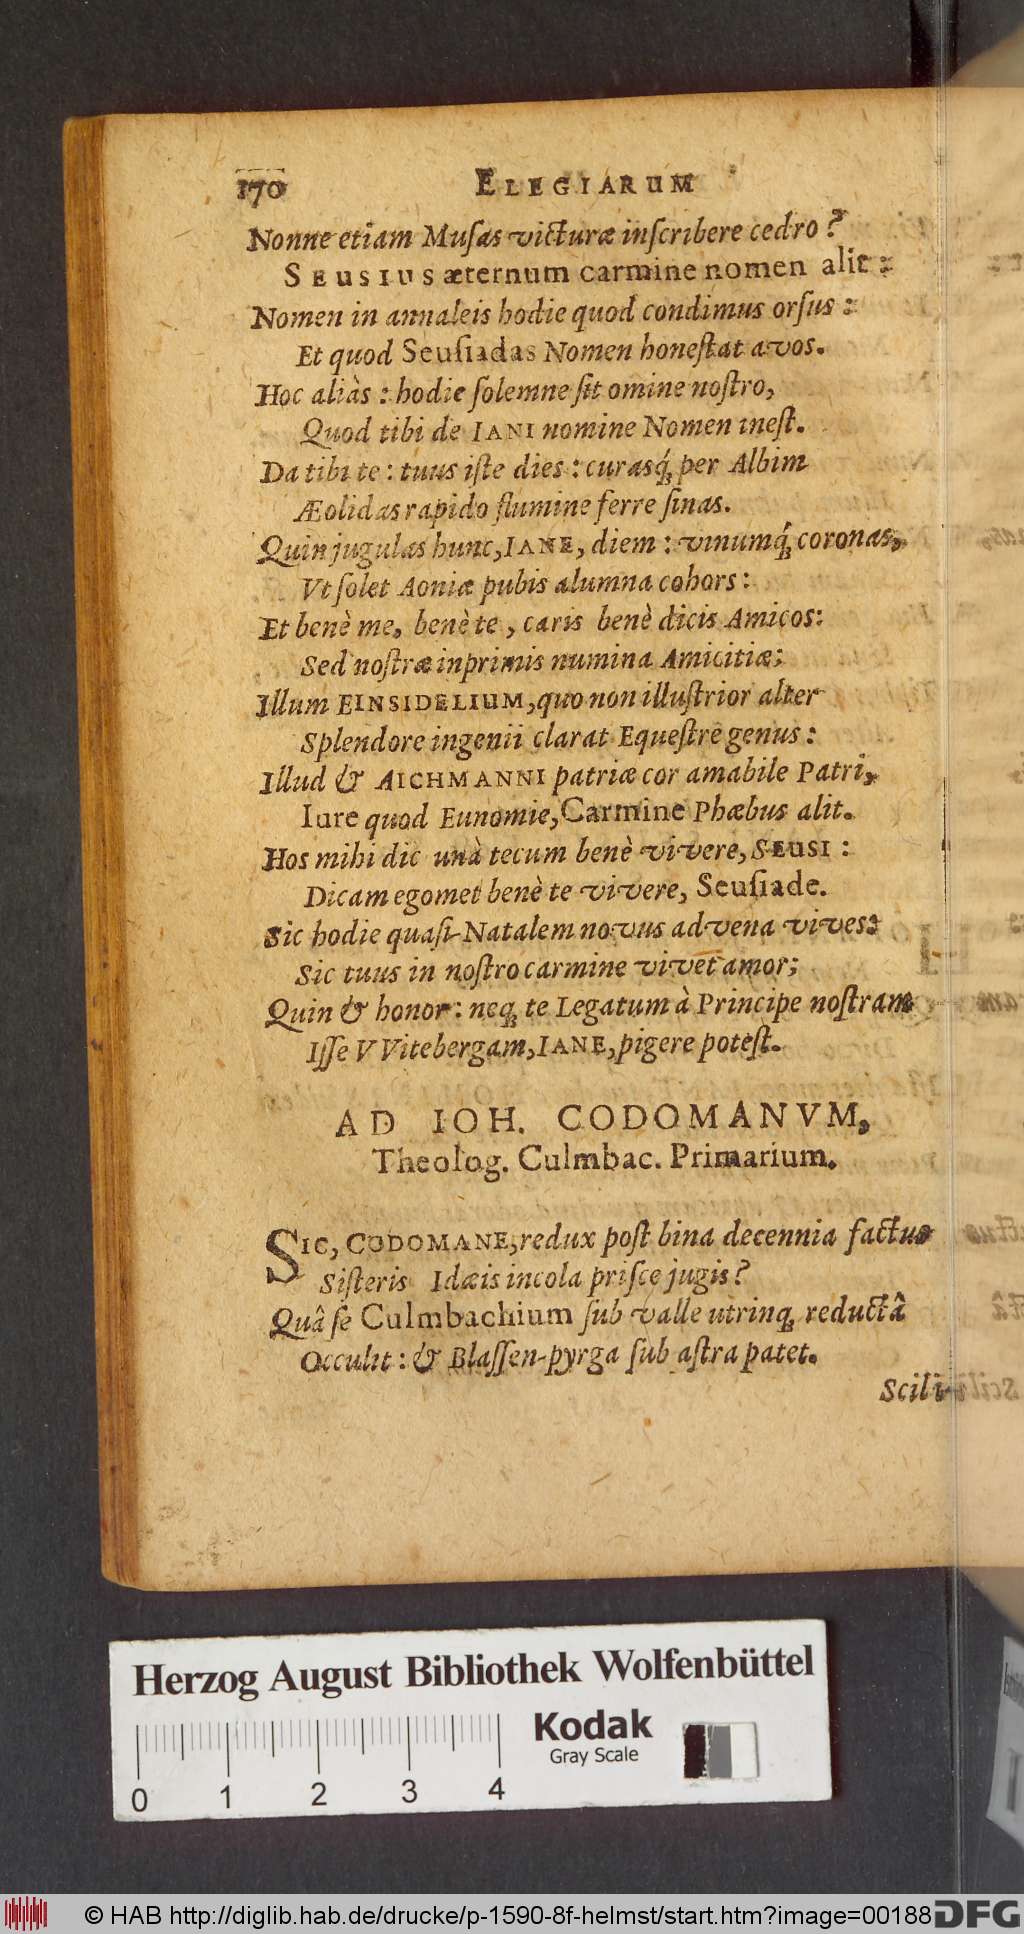 170 ELEGIARUM
Nonne etiam Muſas victuræ inſcribere cedro?
SEUSIUS æternum carmine nomen alit:
Nomen in annaleis hodie quod condimus orſus:
Et quod Seuſiadas Nomen honeſtat avos.
Hoc aliàs: hodie ſolemne ſit omine noſtro,
Quod tibi de IANI nomine Nomen ineſt.
Da tibi te: tuus iſte dies: curasq́; per Albim
Æolidas rapido flumine ferre ſinas.
Quin jugulas hunc, IANE, diem: vinumq́; coronas,
Vt ſolet Aoniæ pubis alumna cohors:
Et benè me, benè te, caris benè dicis Amicos:
Sed noſtræ inprimis numina Amicitiæ;
Illum EINSIDELIUM, quo non illuſtrior alter
Splendore ingenii clarat Equeſtre genus:
Illud & AICHMANNI patriæ cor amabile Patri,
Iure quod Eunomie, Carmine Phœbus alit.
Hos mihi dic unà tecum benè vivere, SEUSI:
Dicam egomet benè te vivere, Seuſiade.
Sic hodie quaſi-Natalem novus advena vives:
Sic tuus in noſtro carmine vivet amor;
Quin & honor: neq; te Legatum à Principe noſtram
Iſſe VVitebergam, IANE, pigere poteſt.
AD IOH. CODOMANVM,
Theolog. Culmbac. Primarium.
SIC, CODOMANE, redux poſt bina decennia factus
Siſteris Idæis incola priſce jugis?
Quâ ſe Culmbachium ſub valle utrinq; reductâ
Occulit: & Blaſſen-pyrga ſub aſtra patet.
Scili-
Herzog August Bibliothek Wolfenbüttel
Kodak
Gray Scale
0 1 2 3 4
© HAB http://diglib.hab.de/drucke/p-1590-8f-helmst/start.htm?image=00188
DFG